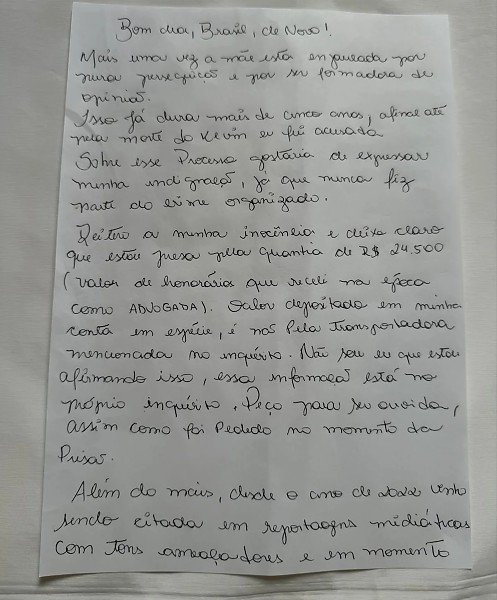 Bom dia, Brasil, de Novo!
Mais uma vez a mãe está enjaulada por
pura perseguição e por ser formadora de
opinião.
Isso já dura mais de cinco anos, afinal até
pela morte do Kevin eu fui acusada.
Sobre esse Processo gostaria de expressar
minha indignação, já que nunca fiz
parte do crime organizado.
Reitero a minha inocência e deixo claro
que estou presa pela quantia de R$ 24.500
(valor de honorários que recebi na época
como ADVOGADA). Valor depositado em minha
conta em espécie, e não pela transportadora
mencionada no inquérito. Não sou eu que estou
afirmando isso, essa informação está no
próprio inquérito. Peço para ser ouvida,
assim como foi Pedido no momento da
Prisão.
Além do mais, desde o ano de 2022 venho
sendo citada em reportagens midiáticas
com tons ameaçadores e em momento